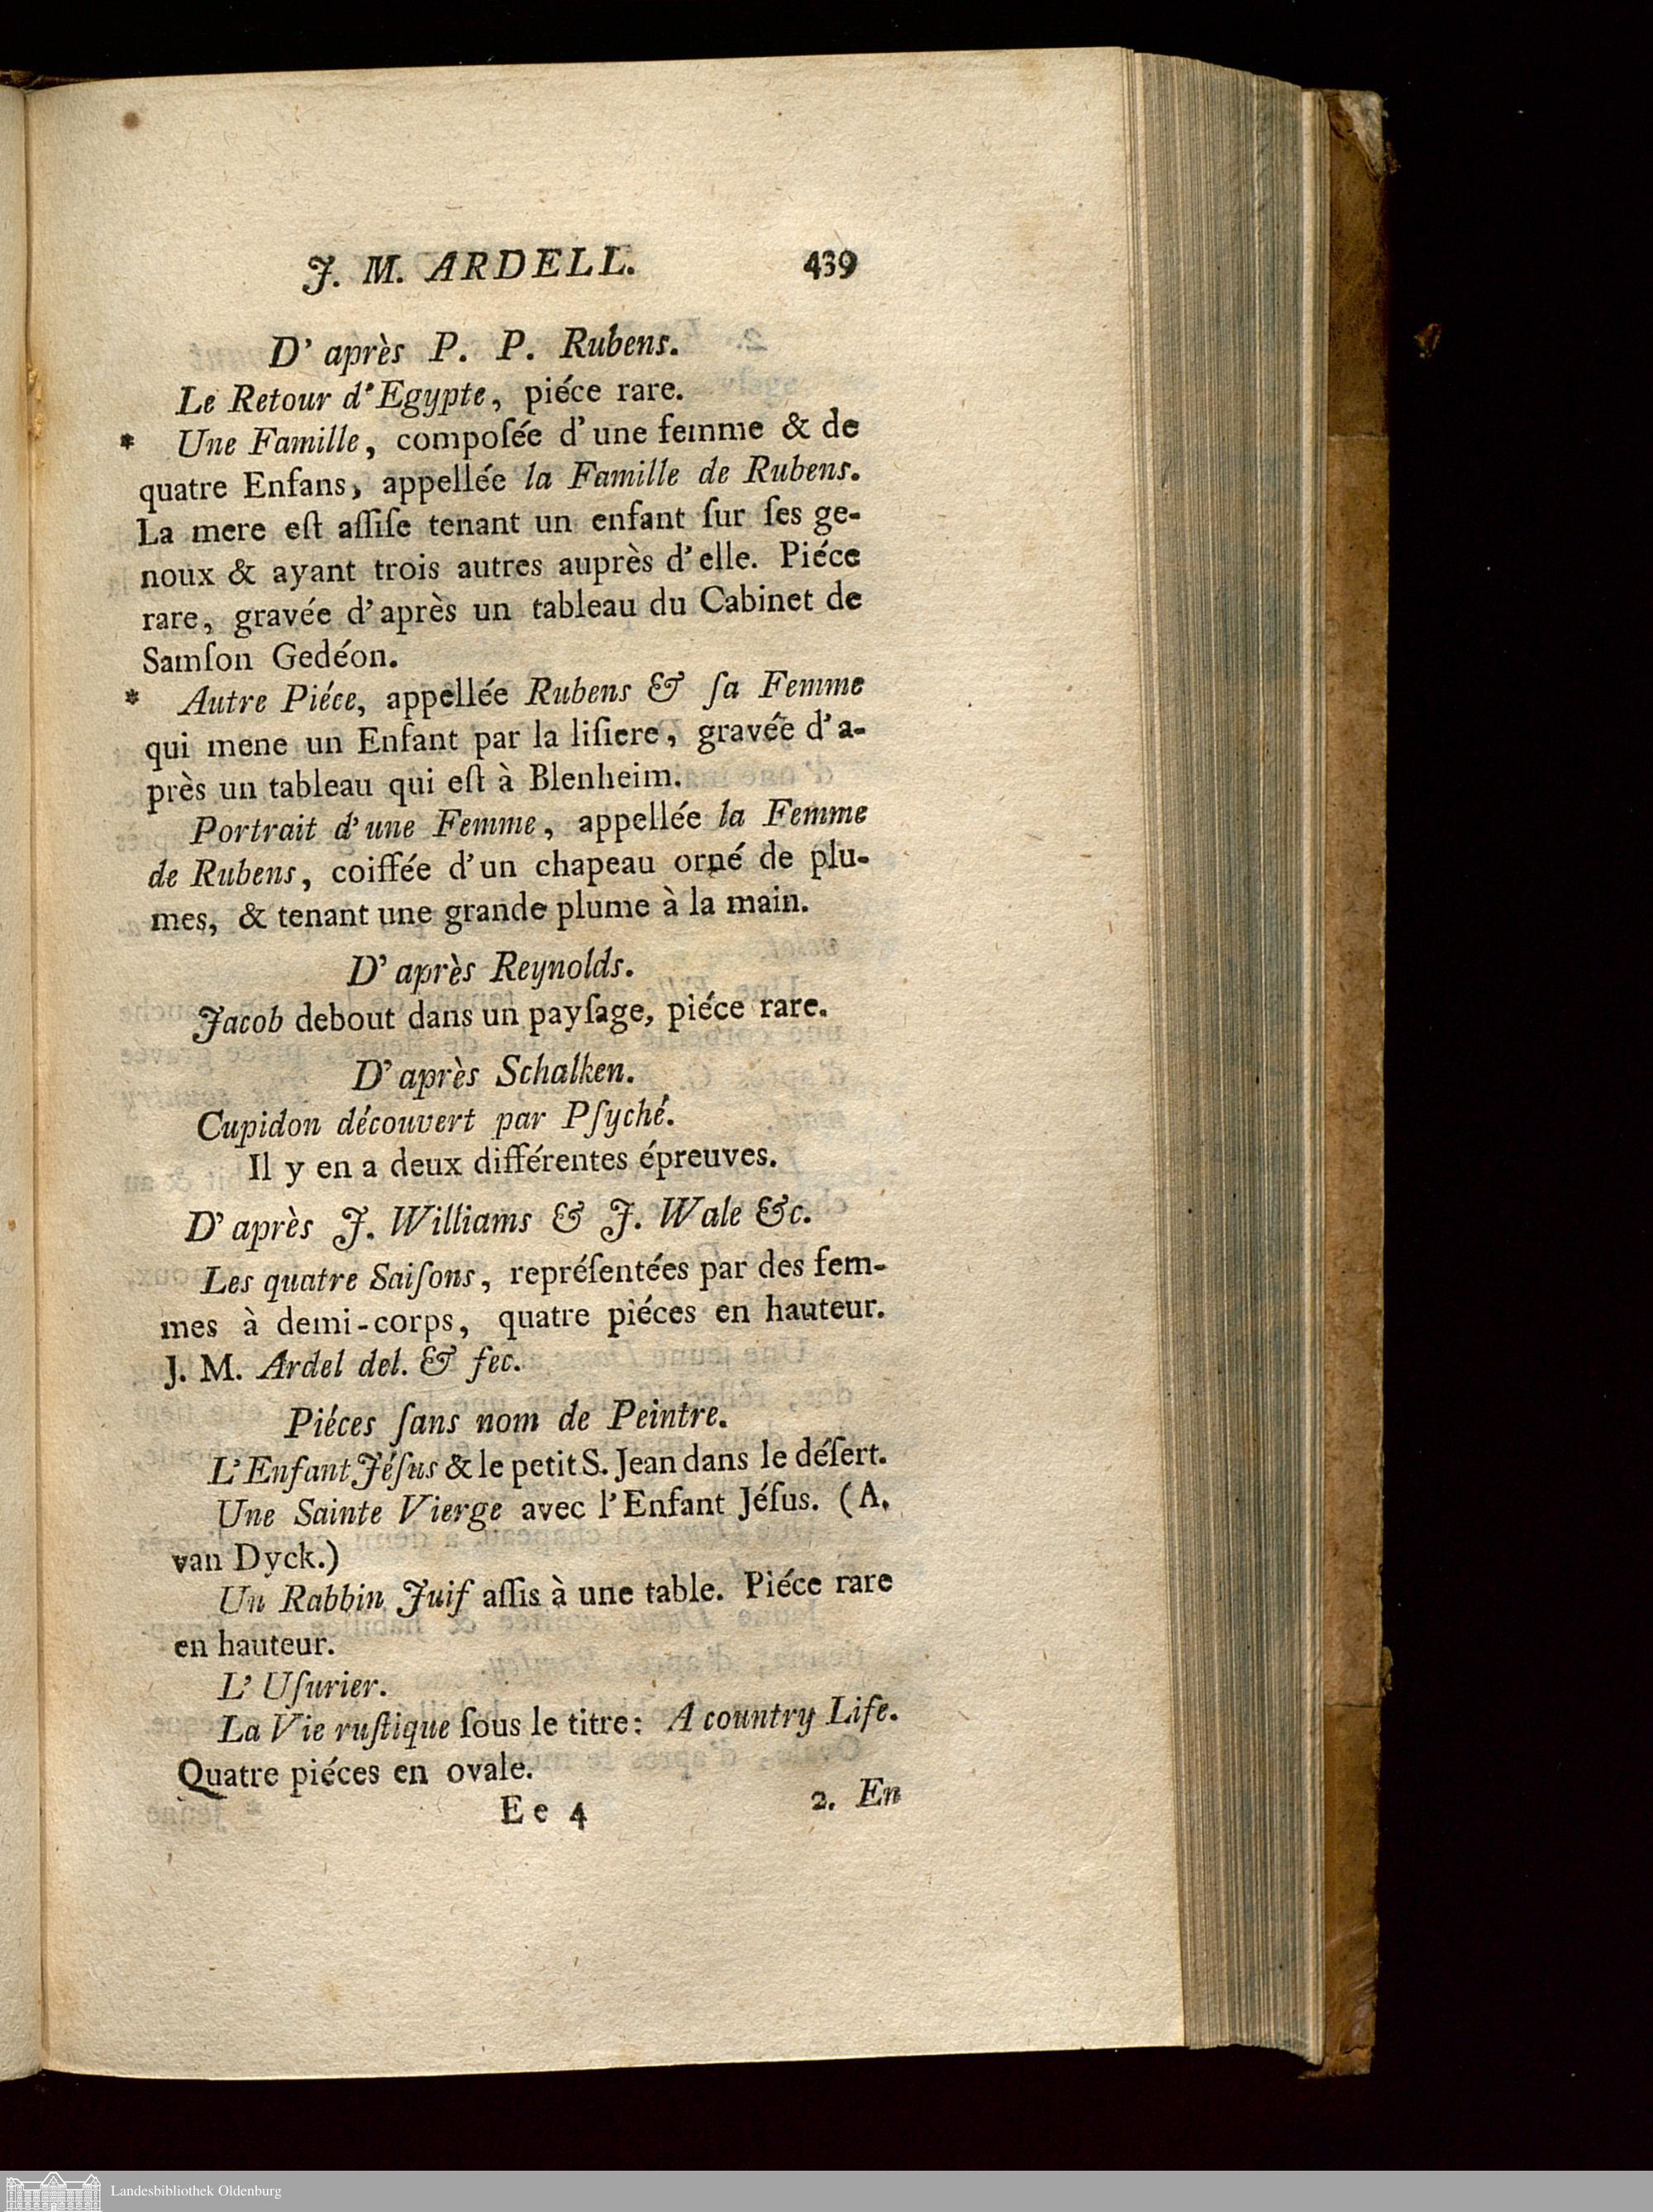 J. M. ARDELL. 439
D' après P. P. Rubens.
Le Retour d'Egypte, piéce rare.
* Une Famille, compoſée d'une femme & de
quatre Enfans, appellée la Famille de Rubens.
La mere eſt aſſiſe tenant un enfant ſur ſes ge-
noux & ayant trois autres auprès d'elle. Piéce
rare, gravée d'après un tableau du Cabinet de
Samſon Gedéon.
* Autre Piéce, appellée Rubens & ſa Femme
qui mene un Enfant par la liſiere, gravée d'a-
près un tableau qui eſt à Blenheim.
Portrait d'une Femme, appellée la Femme
de Rubens, coiffée d'un chapeau orné de plu-
mes, & tenant une grande plume à la main.
D' après Reynolds.
Jacob debout dans un payſage, piéce rare.
D' après Schalken.
Cupidon découvert par Pſyché.
Il y en a deux différentes épreuves.
D' après J. Williams & J. Wale &c.
Les quatre Saiſons, repréſentées par des fem-
mes à demi-corps, quatre piéces en hauteur.
J. M. Ardel del. & fec.
Piéces ſans nom de Peintre.
L'Enfant Jéſus & le petit S. Jean dans le déſert.
Une Sainte Vierge avec l'Enfant Jéſus. (A.
van Dyck.)
Un Rabbin Juif aſſis à une table. Piéce rare
en hauteur.
L' Uſurier.
La Vie ruſtique ſous le titre: A country Life.
Quatre piéces en ovale.
E e 4 2. En
Landesbibliothek Oldenburg